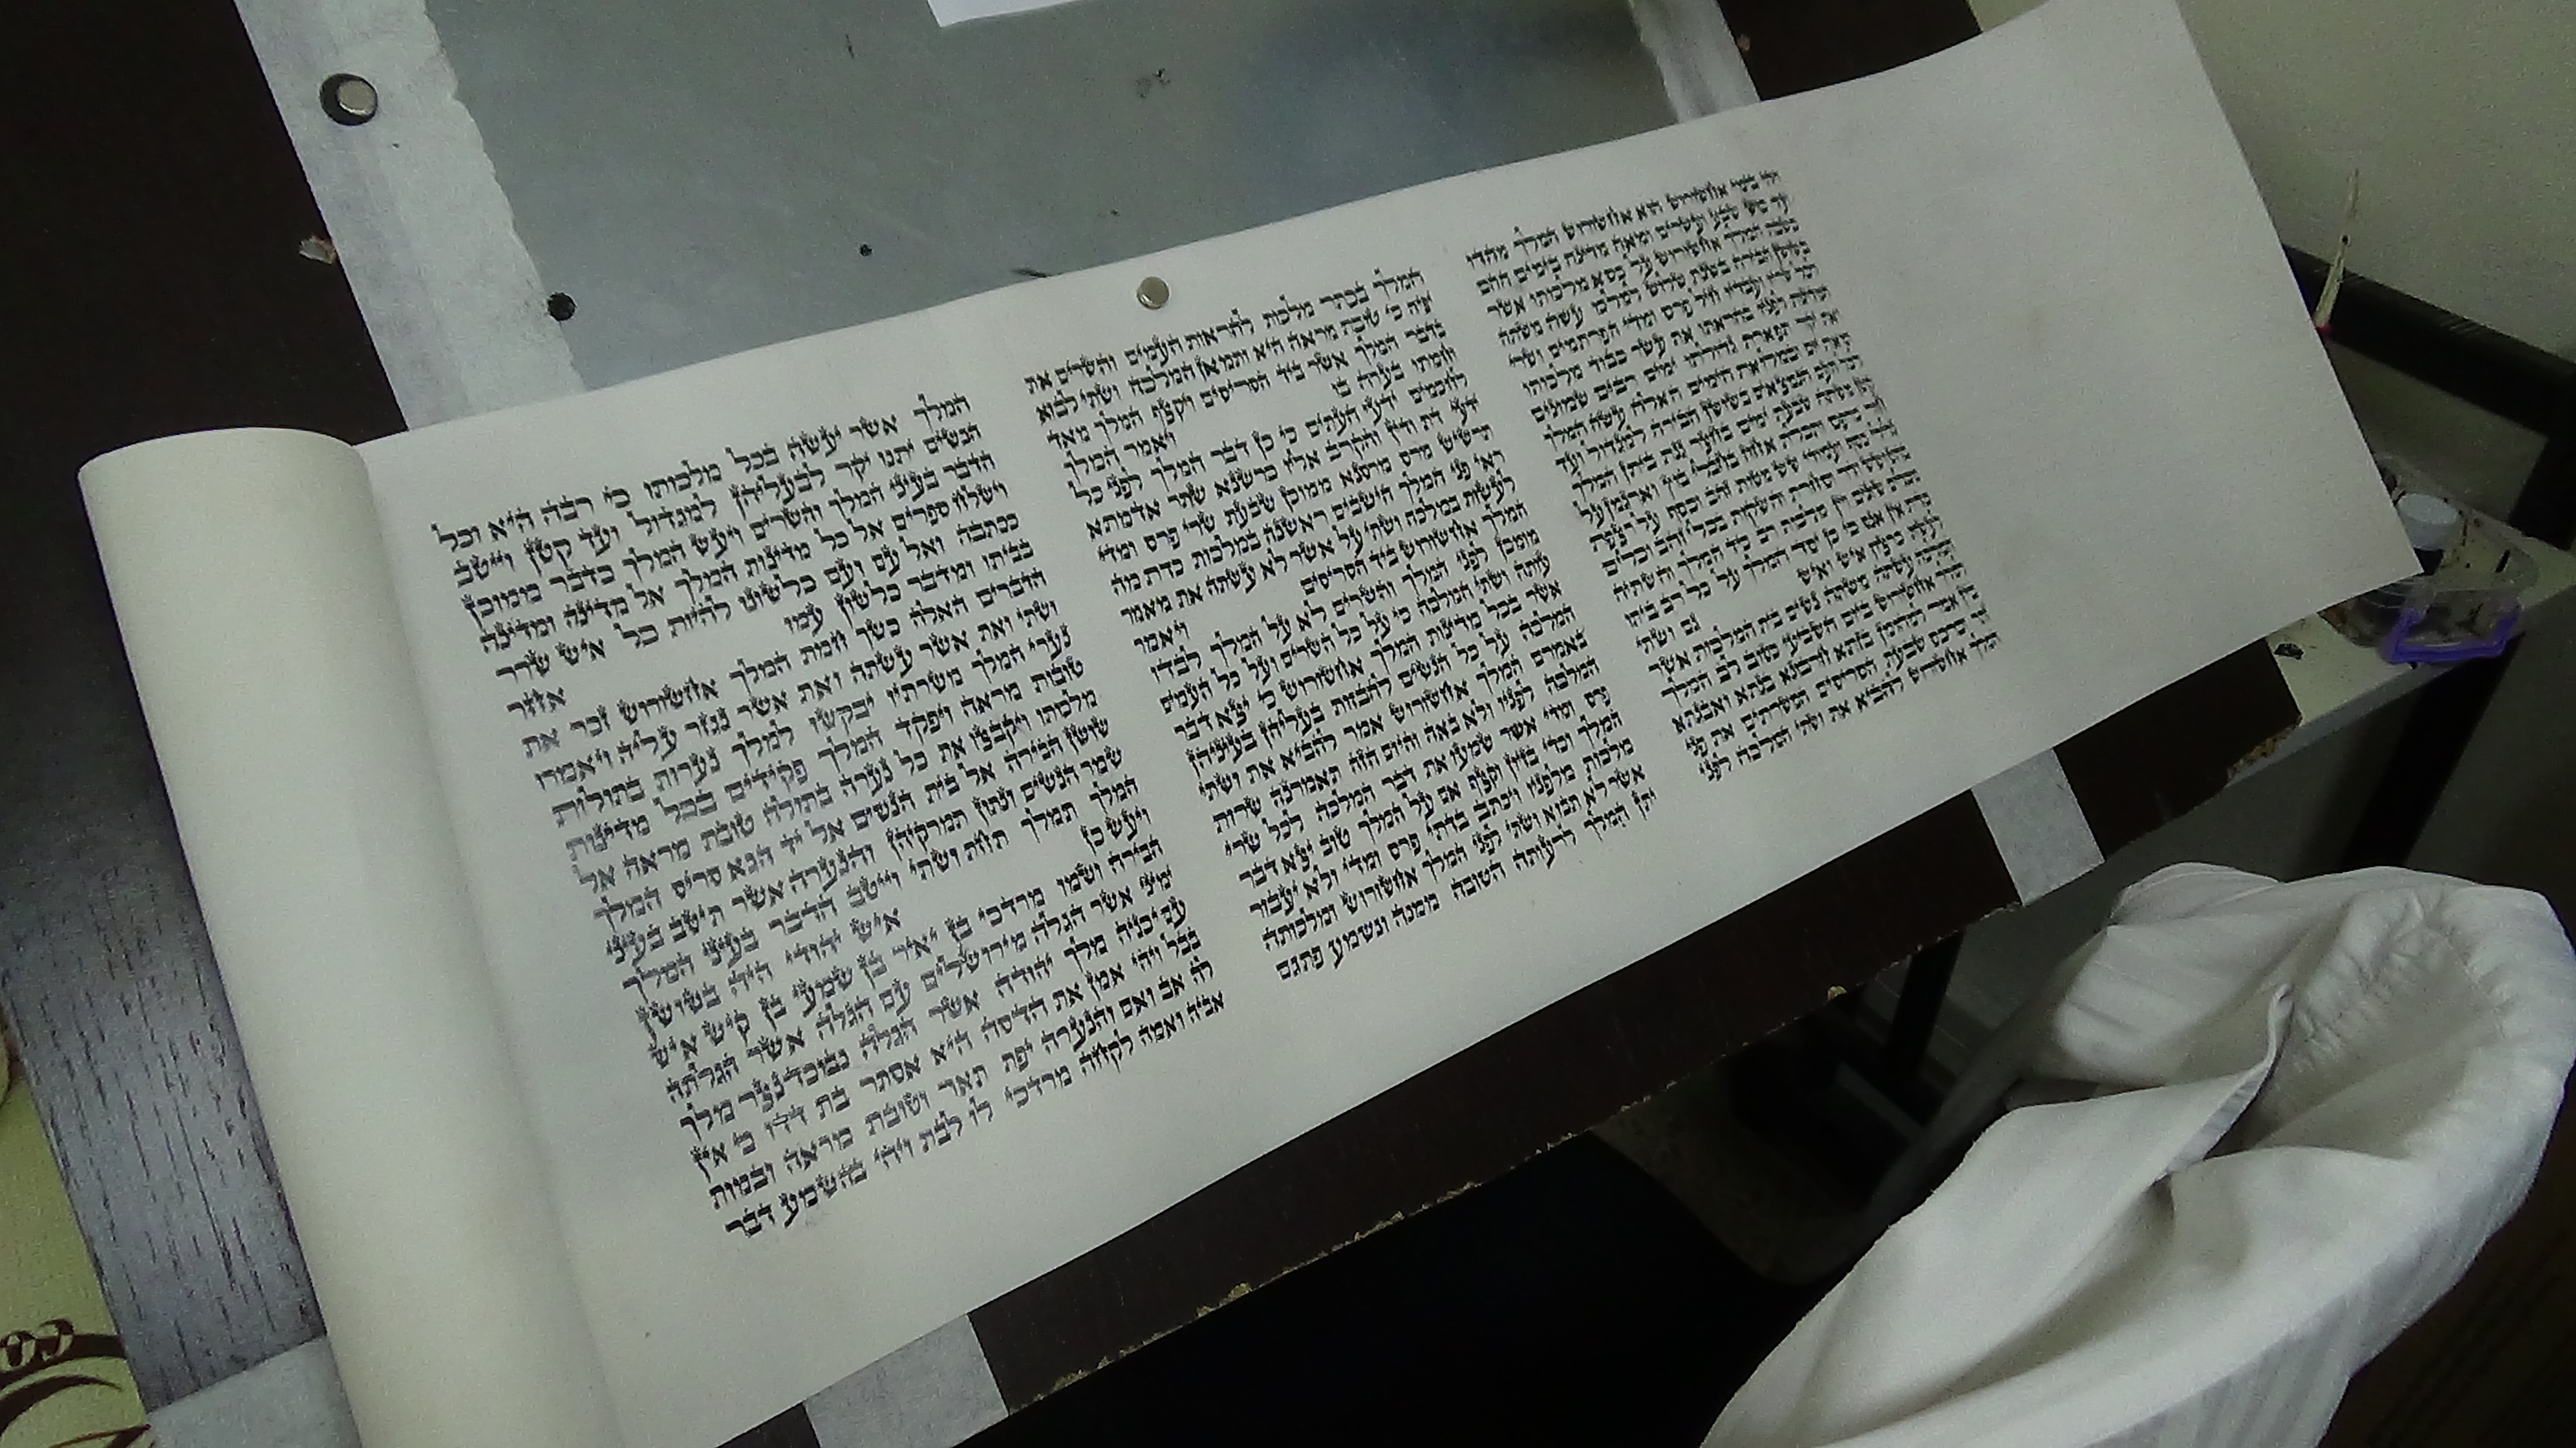 ויהי בימי אחשורוש הוא אחשורוש המלך מהדו
ועד כוש שבע ועשרים ומאה מדינה בימים ההם
כשבת המלך אחשורוש על כסא מלכותו אשר
בשושן הבירה בשנת שלוש למלכו עשה משתה
לכל שריו ועבדיו חיל פרס ומדי הפרתמים ושרי
המדינות לפניו בהראתו את עשר כבוד מלכותו
ואת יקר תפארת גדולתו ימים רבים שמונים
ומאת יום ובמלואת הימים האלה עשה המלך
לכל העם הנמצאים בשושן הבירה למגדול ועד
קטן משתה שבעת ימים בחצר גנת ביתן המלך
חור כרפס ותכלת אחוז בחבלי בוץ וארגמן על
גלילי כסף ועמודי שש מטות זהב וכסף על רצפת
בהט ושש ודר וסחרת והשקות בכלי זהב וכלים
מכלים שונים ויין מלכות רב כיד המלך והשתיה
כדת אין אנס כי כן יסד המלך על כל רב ביתו
לעשות כרצון איש ואיש גם ושתי
המלכה עשתה משתה נשים בית המלכות אשר
למלך אחשורוש ביום השביעי כטוב לב המלך
ביין אמר למהומן בזתא חרבונא בגתא ואבגתא
זתר וכרכס שבעת הסריסים המשרתים את פני
המלך אחשורוש להביא את ושתי המלכה לפני
המלך בכתר מלכות להראות העמים והשרים את
יפיה כי טובת מראה היא ותמאן המלכה ושתי לבוא
בדבר המלך אשר ביד הסריסים ויקצף המלך מאד
וחמתו בערה בו ויאמר המלך
לחכמים ידעי העתים כי כן דבר המלך לפני כל
ידעי דת ודין והקרב אליו כרשנא שתר אדמתא
תרשיש מרס מרסנא ממוכן שבעת שרי פרס ומדי
ראי פני המלך הישבים ראשנה במלכות כדת מה
לעשות במלכה ושתי על אשר לא עשתה את מאמר
המלך אחשורוש ביד הסריסים ויאמר
מומכן לפני המלך והשרים לא על המלך לבדו
עותה ושתי המלכה כי על כל השרים ועל כל העמים
אשר בכל מדינות המלך אחשורוש כי יצא דבר
המלכה על כל הנשים להבזות בעליהן בעיניהן
באמרם המלך אחשורוש אמר להביא את ושתי
המלכה לפניו ולא באה והיום הזה תאמרנה שרות
פרס ומדי אשר שמעו את דבר המלכה לכל שרי
המלך וכדי בזיון וקצף אם על המלך טוב יצא דבר
מלכות מלפניו ויכתב בדתי פרס ומדי ולא יעבור
אשר לא תבוא ושתי לפני המלך אחשורוש ומלכותה
יתן המלך לרעותה הטובה ממנה ונשמע פתגם
המלך אשר יעשה בכל מלכותו כי רבה היא וכל
הנשים יתנו יקר לבעליהן למגדול ועד קטן וייטב
הדבר בעיני המלך והשרים ויעש המלך כדבר ממוכן
וישלח ספרים אל כל מדינות המלך אל מדינה ומדינה
ככתבה ואל עם ועם כלשונו להיות כל איש שרר
בביתו ומדבר כלשון עמו אחר
הדברים האלה כשך חמת המלך אחשורוש זכר את
ושתי ואת אשר עשתה ואת אשר נגזר עליה ויאמרו
נערי המלך משרתיו יבקשו למלך נערות בתולות
טובות מראה ויפקד המלך פקידים בכל מדינות
מלכותו ויקבצו את כל נערה בתולה טובת מראה אל
שושן הבירה אל בית הנשים אל יד הגא סריס המלך
שמר הנשים ונתון תמרקיהן והנערה אשר תיטב בעיני
המלך תמלך תחת ושתי וייטב הדבר בעיני המלך
ויעש כן איש יהודי היה בשושן
הבירה ושמו מרדכי בן יאיר בן שמעי בן קיש איש
ימיני אשר הגלה מירושלים עם הגלה אשר הגלתה
עם יכניה מלך יהודה אשר הגלה נבוכדנצר מלך
בבל ויהי אמן את הדסה היא אסתר בת דדו כי אין
לה אב ואם והנערה יפת תאר וטובת מראה ובמות
אביה ואמה לקחה מרדכי לו לבת ויהי בהשמע דבר